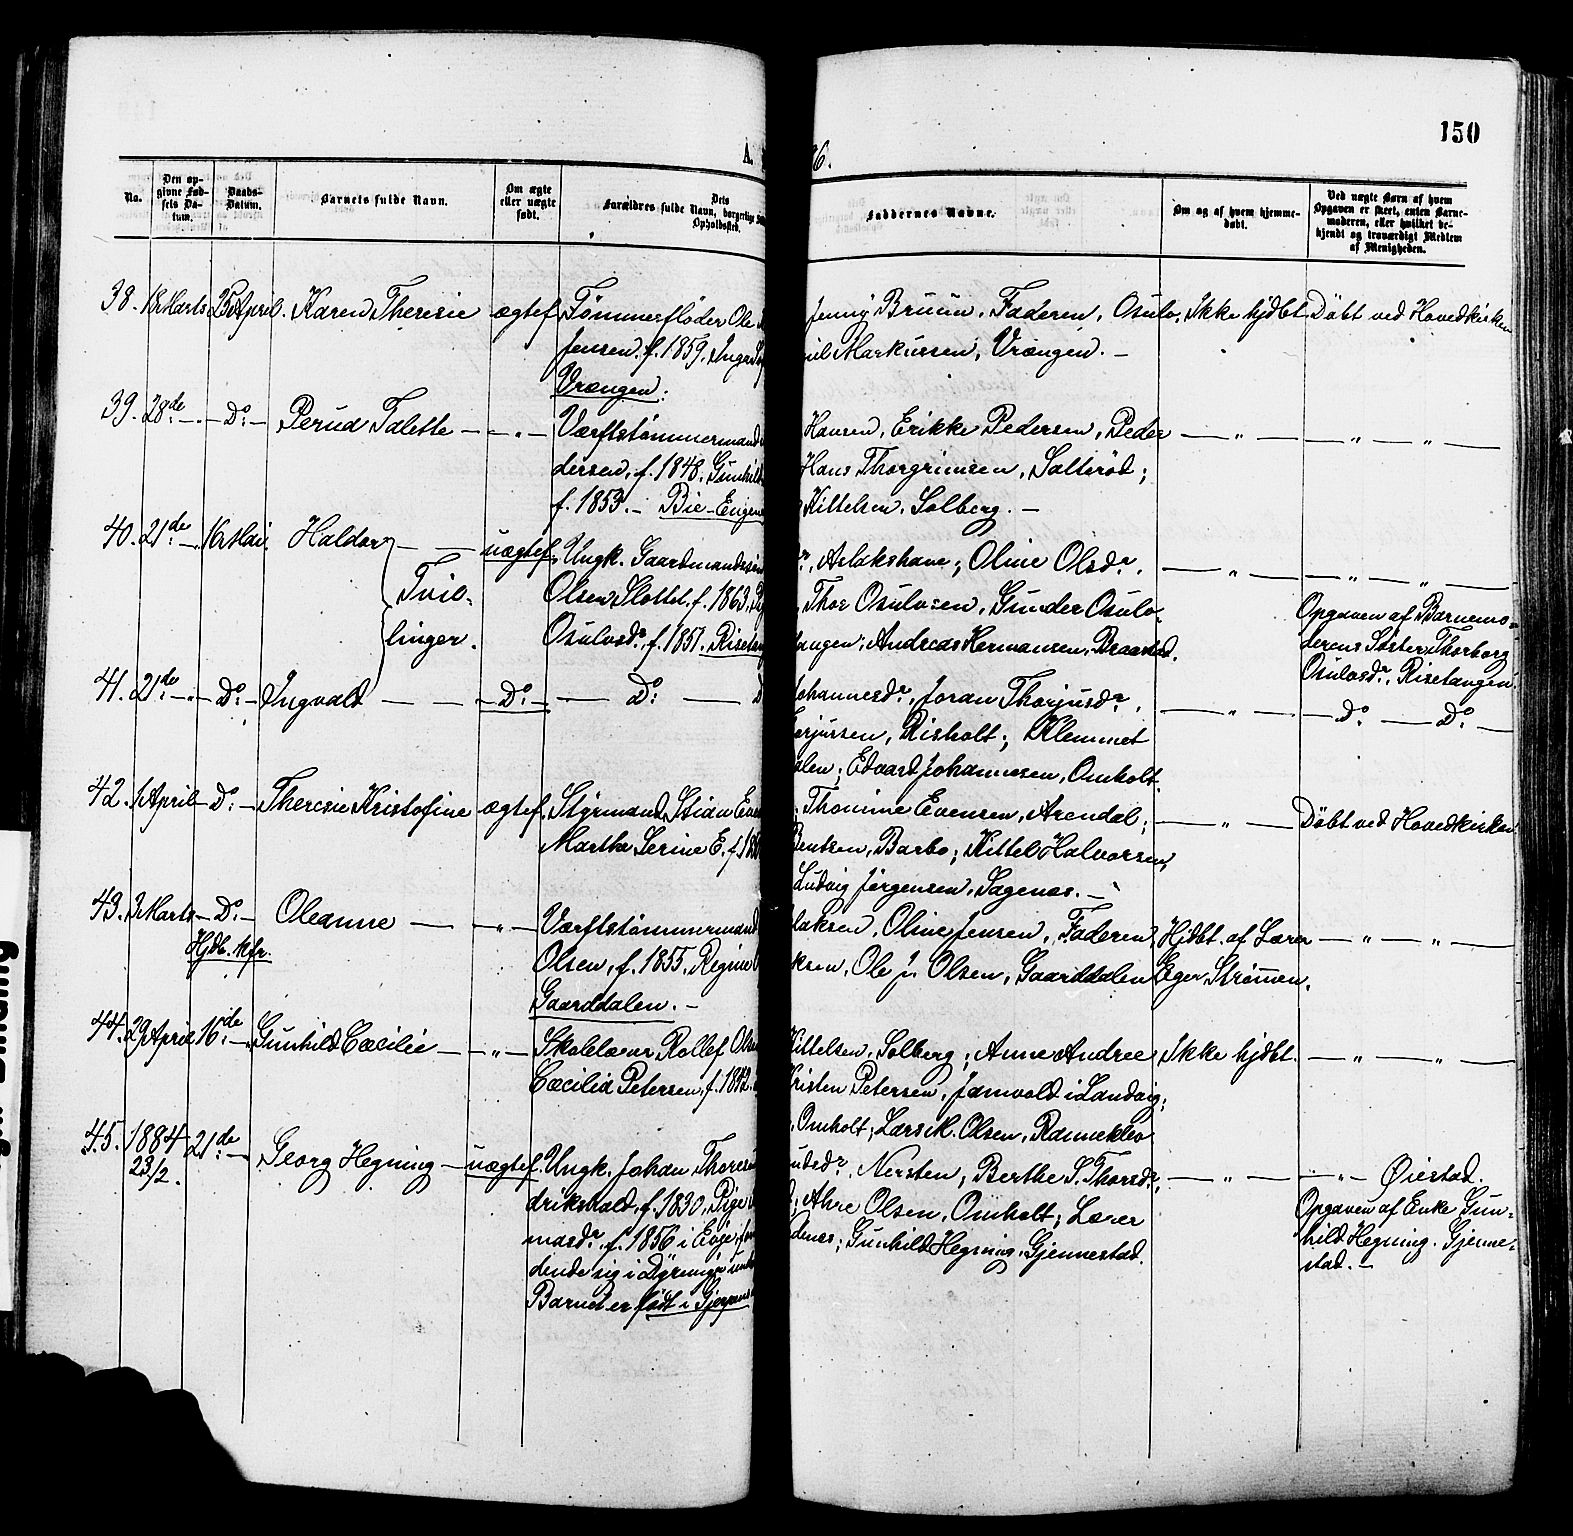 150
A. 6.
No.
Den op-
givne Fød-
sels Da-
tum.
Daabs-
Datum.
Barnets fulde Navn.
Om ægte
eller uægte
født.
Dets
Forældres fulde Navn, borgerlige
Opholdssted.
Faddernes Navne.
Om og af hvem hjemme-
døbt.
Ved uægte Børn af hvem
Opgaven er skeet, enten Barne-
moderen, eller hvilket be-
kjendt og troværdigt Medlem
af Menigheden.
38. 18 Marts 25 April. Karen Theresie ægtef. Tømmerfløder Ole
Jensen, f. 1859, Inge
Vrængen:
Jenny Bruun, Faderen, Osulv, Ikke hjdbt. Døbt ved Hovedkirken
Markussen, Vrængen. —
39. 28de — Do: — Perud Talette — — " — Værftstømmermand
dersen, f. 1848, Gunhild
f. 1853. — Bie-Engene
Hansen, Erikke Pedersen, Peder — " — — " — " —
Hans Thorgrimsen, Salterød;
Kittelsen, Solberg. —
40. 21de — 16 Mai. Haldor — — uægtef. Ungk. Gaardmandssøn
Tvil-
linger.
Olsen Slottet f. 1863,
Osulvsdr. f. 1851. Risetang
Aslakshave; Oline Olsdr. — " — — " — " —
Thor Osulvsen, Gunder Osulv-
angen; Andreas Hermansen, Braastad.
Opgaven af Barnemo-
derens Søster, Thorborg
Osulvsdr., Risetangen.
41. 21de — " — Do: — Ingvald — — — Do: — — Do: —
Johannesdr., Joran Thorjusdr., — " — — Do — Do —
orjussen, Risholt; Klemmet
alen; Edvard Johannesen, Omholt.
42. 1 April — Do: — Theresie Kristofine ægtef. Styrmand Stian Even
Marthe Serine E. f. 18
Thomine Evensen, Arendal; — " — Døbt ved Hovedkirken
Bentsen, Barbo; Kittel Halvorsen,
Ludvig Jørgensen, Sagenes. —
43. 3 Marts — Do: — Oleanne — — " — Værftstømmermand
Hjdb. Mfr.
Olsen, f. 1855. Regine
Gaarddalen. —
laksen, Oline Jensen, Faderen, Hjdbt. af Lærer — " — " —
ksen, Ole J. Olsen, Gaarddalen Eger Strømen.
44. 29 April 16de — Gunhild Cæcilie — " — Skolelærer Rollef Olsen
Cæcilia Petersen, f. 1842.
Kittelsen, Solberg; Anne Andree Ikke hjdbt. — " — " —
Kristen Petersen, Jomvold i Landvig;
Omholt; Lars M. Olsen, Rannekleo
45. 1884 21de — Georg Hegning — uægtef. Ungk. Johan Thoresen
23/2.
drikshald, f. 1830, Pige
masdr. f. 1856 i Evje,
dende sig i Dyrenge
Barnet er født i Gjerpen
udsdr., Nersten; Berthe S. Thorsdr., — " — " — Øiestad.
Ahre Olsen, Omholt; Lærer
denes; Gunhild Hegning, Gjennestad.
Opgaven af Enke Gun-
hild Hegning. Gjenne-
stad. —